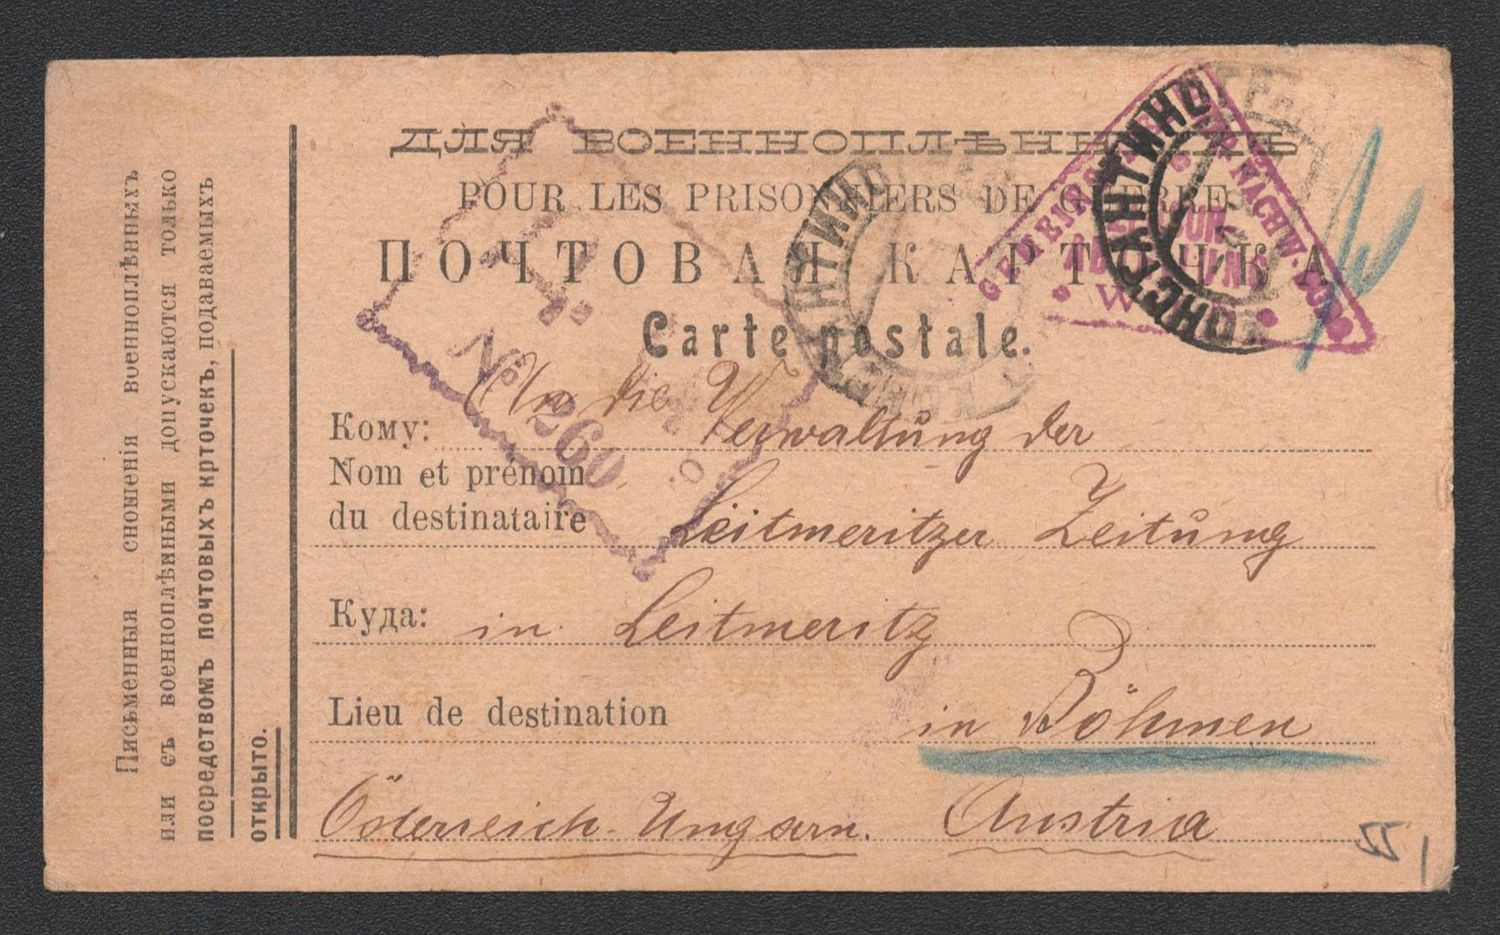 ДЛЯ ВОЕННОПЛѢННЫХЪ
POUR LES PRISONNIERS DE GUERRE
ПОЧТОВАЯ КАРТОЧКА
Carte postale.
An die
Кому: Verwaltung der
Nom et prénom
du destinataire Leitmeritzer Zeitung
Куда: in Leitmeritz
Lieu de destination in Böhmen
Österreich-Ungarn. Austria
Письменныя сношенія военноплѣнныхъ
или съ военноплѣнными допускаются только
посредствомъ почтовыхъ крточекъ, подаваемыхъ
открыто.
№ 260
КОНСТАНТИНО
КОНСТАНТИНОГРАД
NACHW.
ZENSUR
ABTEILUNG
W
55
1